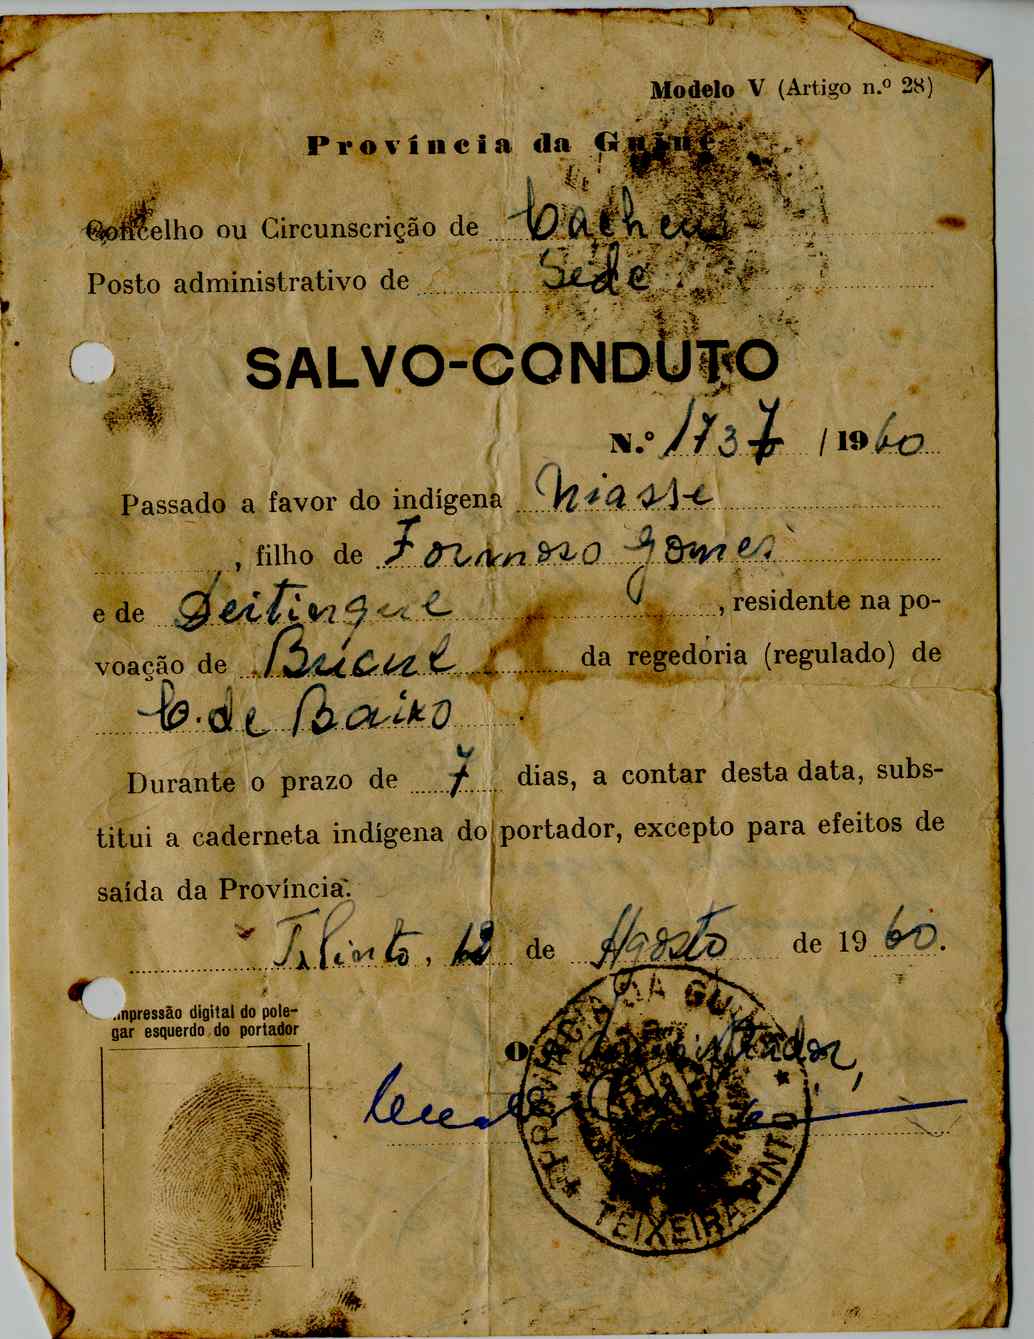 Modelo V (Artigo n.º 28)
Província da Guiné
Concelho ou Circunscrição de Cacheu
Posto administrativo de Sede
SALVO-CONDUTO
N.º 1737 / 1960
Passado a favor do indígena Niasse
, filho de Formoso Gomes
e de Deitingue, residente na po-
voação de Bucul da regedoria (regulado) de
C. de Baixo
Durante o prazo de 7 dias, a contar desta data, subs-
titui a caderneta indígena do portador, excepto para efeitos de
saída da Província.
T. Pinto, 12 de Agosto de 1960.
Impressão digital do pole-
gar esquerdo do portador
O Administrador,
PROVÍNCIA DA GUINÉ
TEIXEIRA PINTO